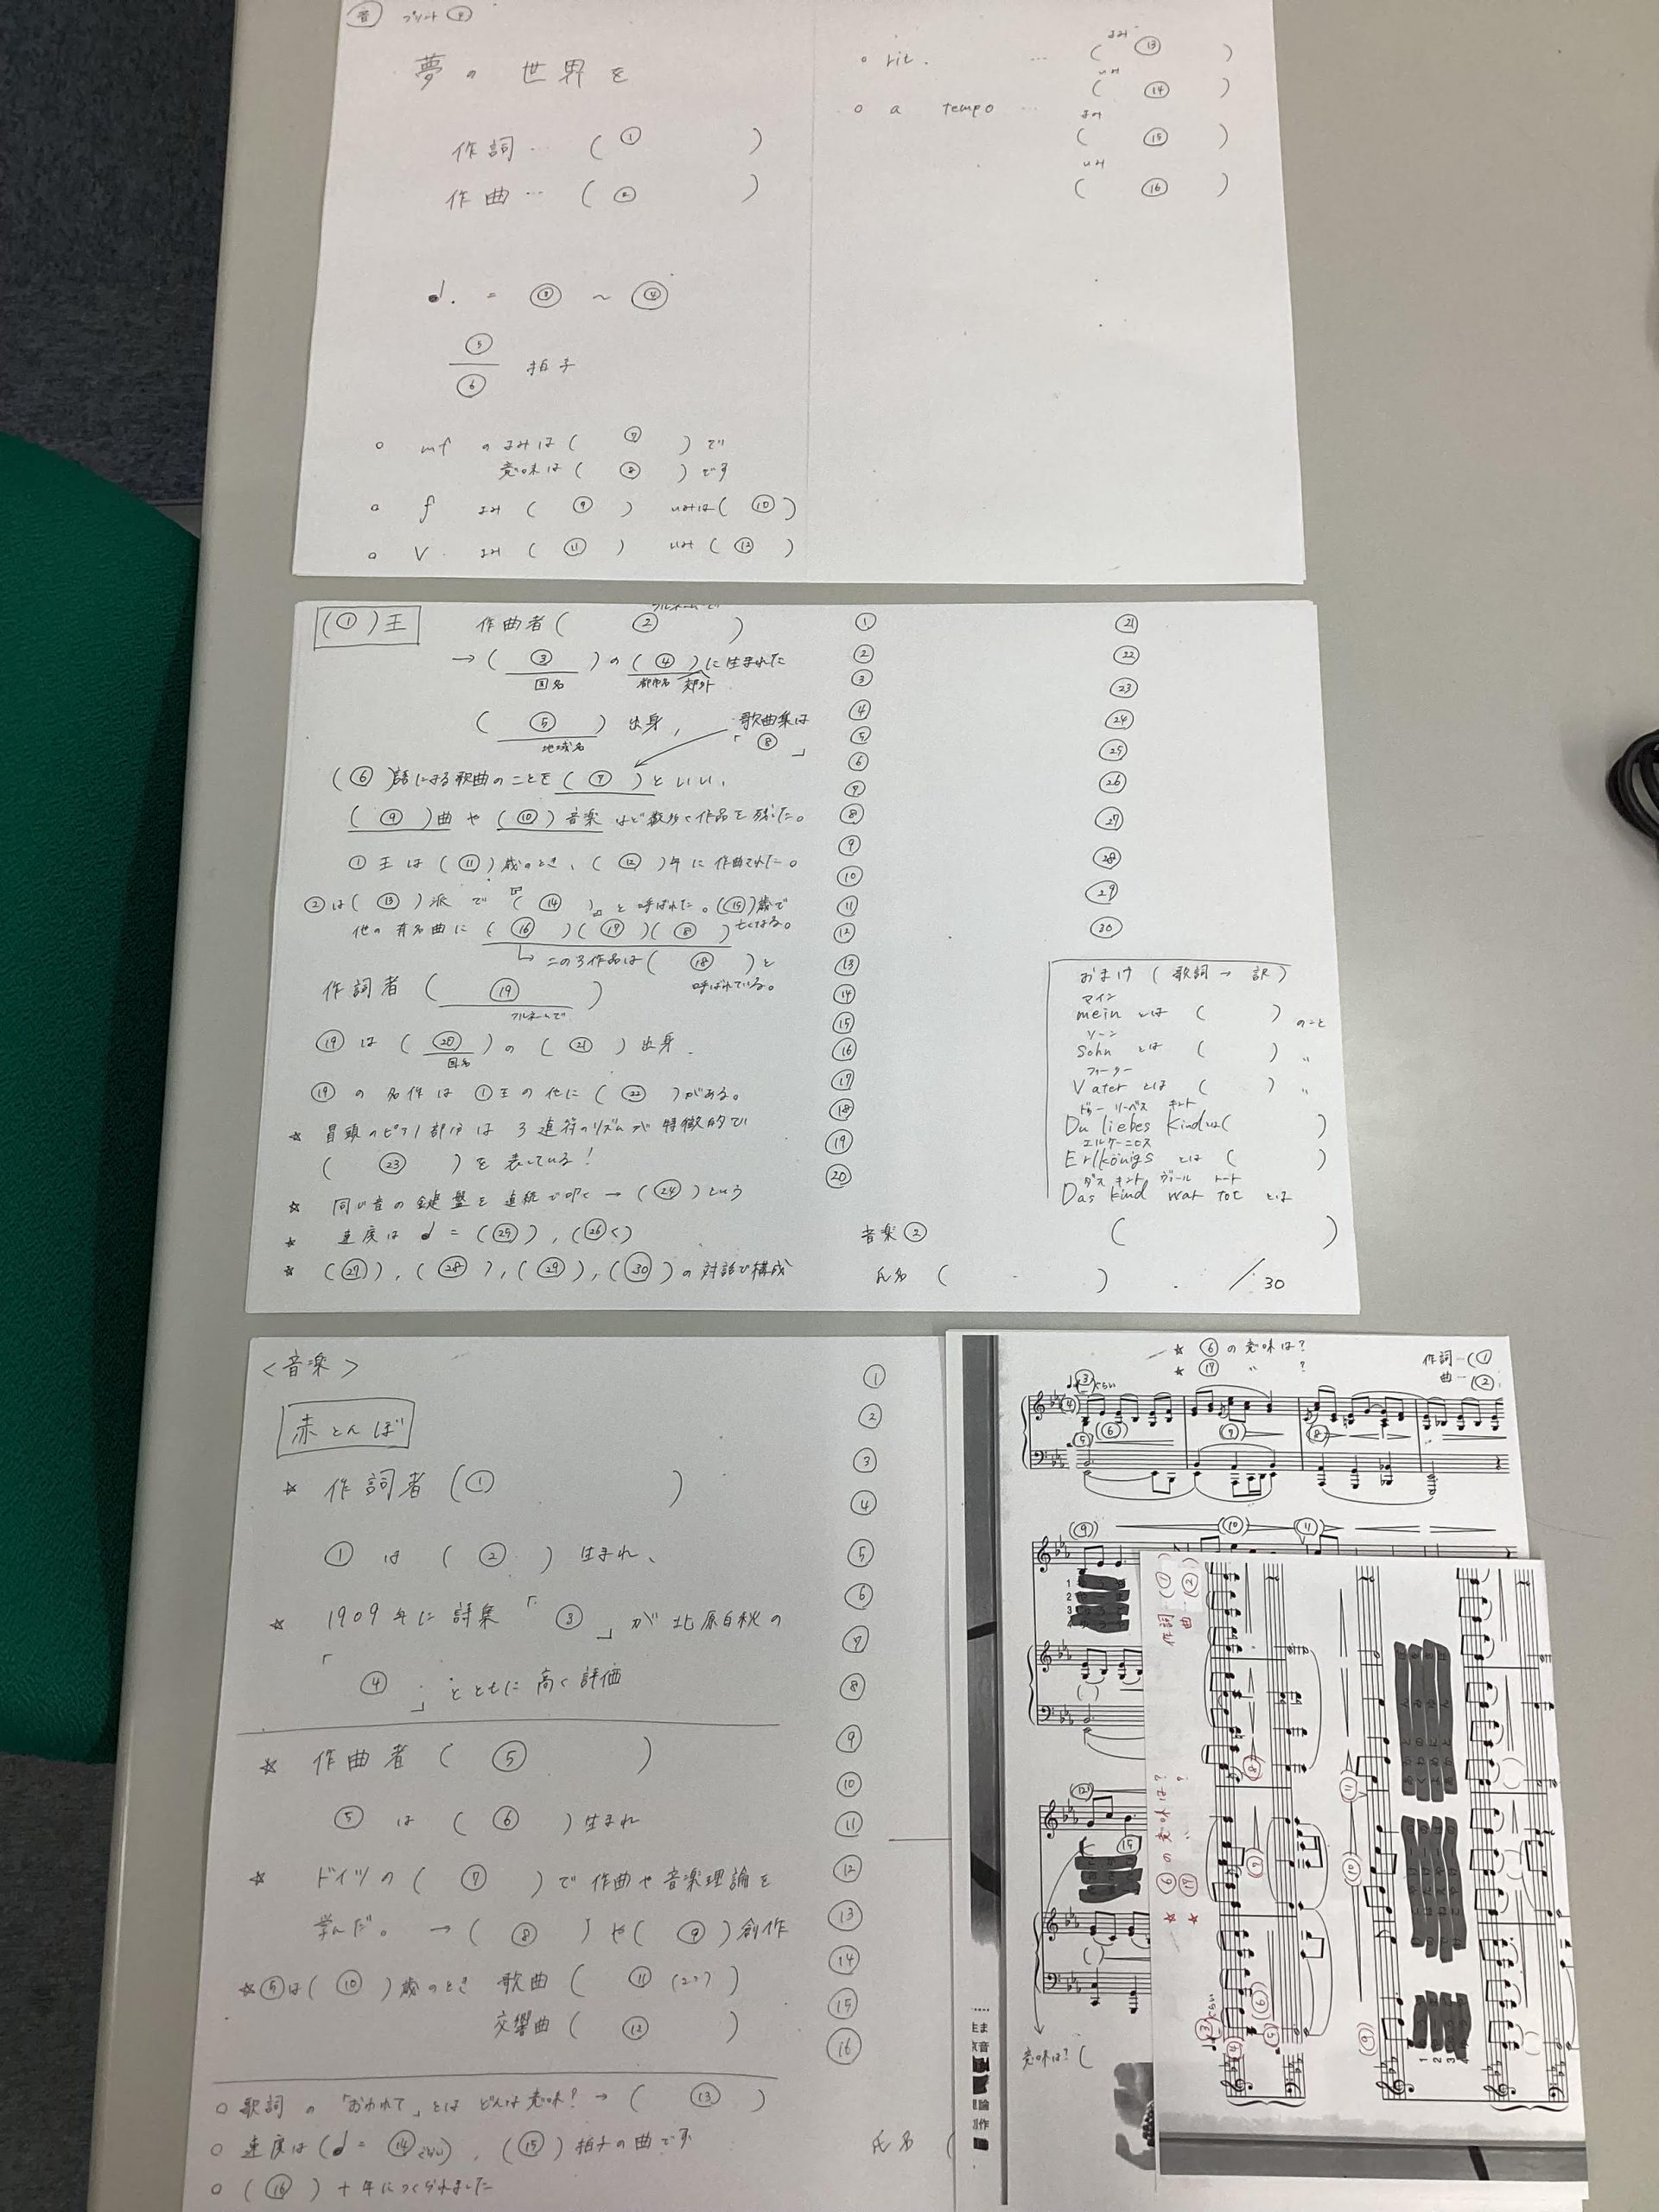 音 プリント ④
夢の世界を
作詞… ( ① )
作曲… ( ② )
♩. = ③ ～ ④
⑤
⑥ 拍子
○ mf のよみは ( ⑦ ) で
意味は ( ⑧ ) です
○ f よみ ( ⑨ ) いみは ( ⑩ )
○ V よみ ( ⑪ ) いみ ( ⑫ )
○ rit. … よみ ( ⑬ )
いみ ( ⑭ )
○ a tempo … よみ ( ⑮ )
いみ ( ⑯ )
(①)王 作曲者 ( ② )
フルネームで
→ ( ③ ) の ( ④ ) に生まれた
国名 都市名 郊外
( ⑤ ) 出身, 歌曲集は
地域名 「 ⑧ 」
( ⑥ )語による歌曲のことを ( ⑦ ) といい、
( ⑨ )曲や ( ⑩ ) 音楽 など数多く作品を残した。
①王は ( ⑪ ) 歳のとき、( ⑫ )年に作曲された。
②は ( ⑬ ) 派で『( ⑭ )』と呼ばれた。(⑮)歳で
亡くなる。
他の有名曲に ( ⑯ )( ⑰ )( ⑧ )
↳ この3作品は ( ⑱ ) と
呼ばれている。
作詞者 ( ⑲ )
フルネームで
⑲は ( ⑳ ) の ( ㉑ ) 出身.
国名
⑲の名作は①王の他に ( ㉒ )がある。
☆ 冒頭のピアノ部分は 3連符のリズムが特徴的で
( ㉓ ) を表している!
☆ 同じ音の鍵盤を連続で叩く → ( ㉔ ) という
☆ 速度は ♩ = (㉕), (㉖く)
☆ (㉗), (㉘), (㉙), (㉚)の対話で構成
①
②
③
④
⑤
⑥
⑦
⑧
⑨
⑩
⑪
⑫
⑬
⑭
⑮
⑯
⑰
⑱
⑲
⑳
音楽②
氏名 ( )
㉑
㉒
㉓
㉔
㉕
㉖
㉗
㉘
㉙
㉚
おまけ (歌詞→訳)
マイン
mein とは ( ) のこと
ゾーン
Sohn とは ( ) 〃
ファーター
Vater とは ( ) 〃
ドゥー リーベス キント
Du liebes Kindは( )
エルケーニヒス
Erlkönigs とは ( )
ダス キント ヴァール トート
Das kind war tot とは
( )
/30
<音楽>
赤とんぼ
☆ 作詞者 (① )
①は ( ② ) 生まれ、
☆ 1909年に詩集「 ③ 」が北原白秋の
「 ④ 」とともに高く評価
☆ 作曲者 ( ⑤ )
⑤は ( ⑥ ) 生まれ
☆ ドイツの ( ⑦ ) で作曲や音楽理論を
学んだ。 → ( ⑧ ) や ( ⑨ ) 創作
☆⑤は ( ⑩ ) 歳のとき 歌曲 ( ⑪ (2つ) )
交響曲 ( ⑫ )
○ 歌詞の「おわれて」とはどんな意味? → ( ⑬ )
○ 速度は (♩= ⑭ぐらい), (⑮)拍子の曲です
○ ( ⑯ ) 十年につくられました
①
②
③
④
⑤
⑥
⑦
⑧
⑨
⑩
⑪
⑫
⑬
⑭
⑮
⑯
氏名 (
☆ ⑥の意味は?
☆ ⑰ 〃 ?
作詞…(①
曲…(②
③ぐらい
(④)
⑤
(⑥)
(⑦)
(⑧)
(⑨)
(⑩)
(⑪)
1
2
3
4
( )
(⑫)
( )
意味は? (
生ま
音
論
作
作詞 (①)
曲 (②)
1
2
3
4